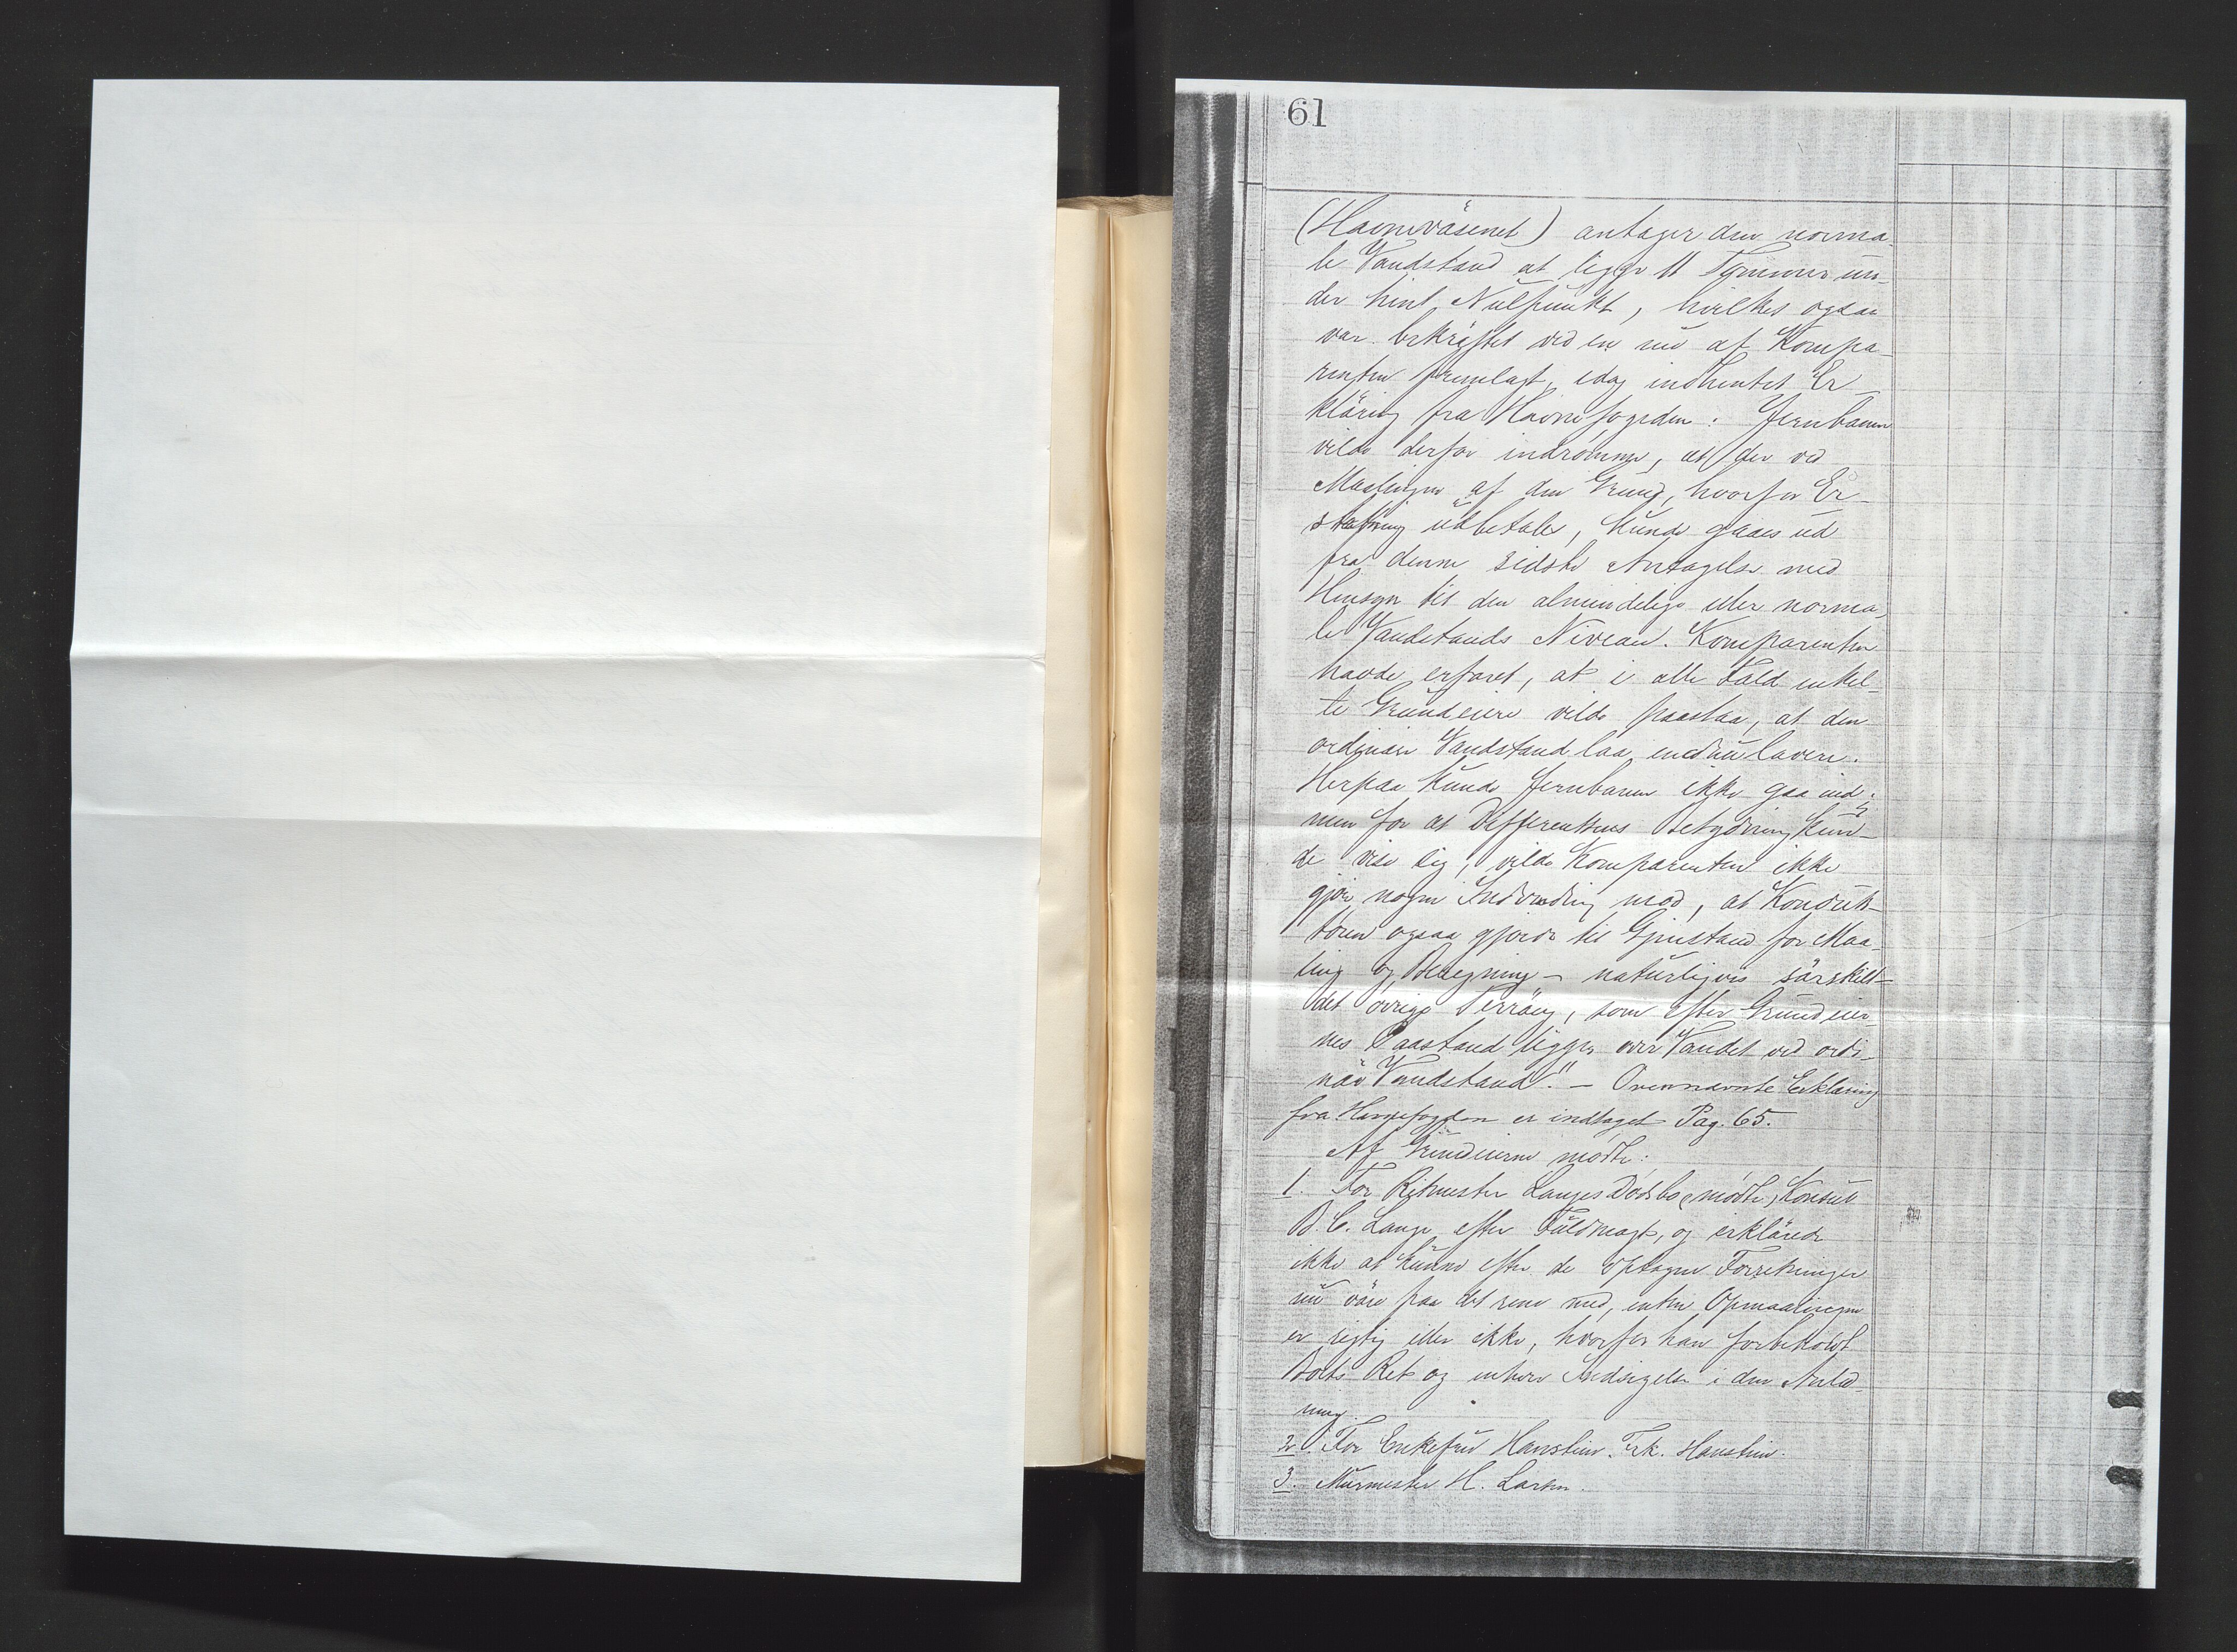 61
(Havnevæsenet) antager den norma-
le Vandstand at ligge 11 Tommer un-
der hint Nulpunkt, hvilket ogsaa
var bekräftet ved en nu af Kompa-
renten fremlagt, idag indhentet Er-
kläring fra Havnefogden: Jernbanen
vilde derfor indrømme, at der ved
Maalingen af den Grund, hvorfor Er-
statning udbetales, kunde gaaes ud
fra denne sidste Antagelse med
Hensyn til den almindelige eller norma-
le Vandstands Niveau. Komparenten
havde erfaret, at i alle Fald enkel-
te Grundeiere vilde paastaa, at den
ordinäre Vandstand laa endnu lavere.
Herpaa kunde Jernbanen ikke gaa ind;
men for at Differentsens Betydning kun-
de vise sig, vilde Komparenten ikke
gjøre nogen Indvending mod, at Konduk-
tøren ogsaa gjorde til Gjenstand for Maa-
ling og Beregning – naturligvis särskilt –
det øvrige Terräng, som efter Grundeier-
nes Paastand ligger over Vandet ved ordi-
när Vandstand." – Ovennævnte Erklæring
fra Havnefogden er indtaget Pag. 65.
Af Grundeierne mødte:
1. For Ritmester Langes Dødsbo mødte Konsul
B. C. Lange efter Fuldmagt, og erklärede
ikke at kunne efter de optagne Forretninger
nu väre paa det rene med, enten Opmaalingen
er rigtig eller ikke, hvorfor han forbeholdt
Boets Ret og enhver Indsigelse i den Anled-
ning.
2. For Enkefru Hanstein Frk. Hanstein.
3. Murmester H. Larsen.